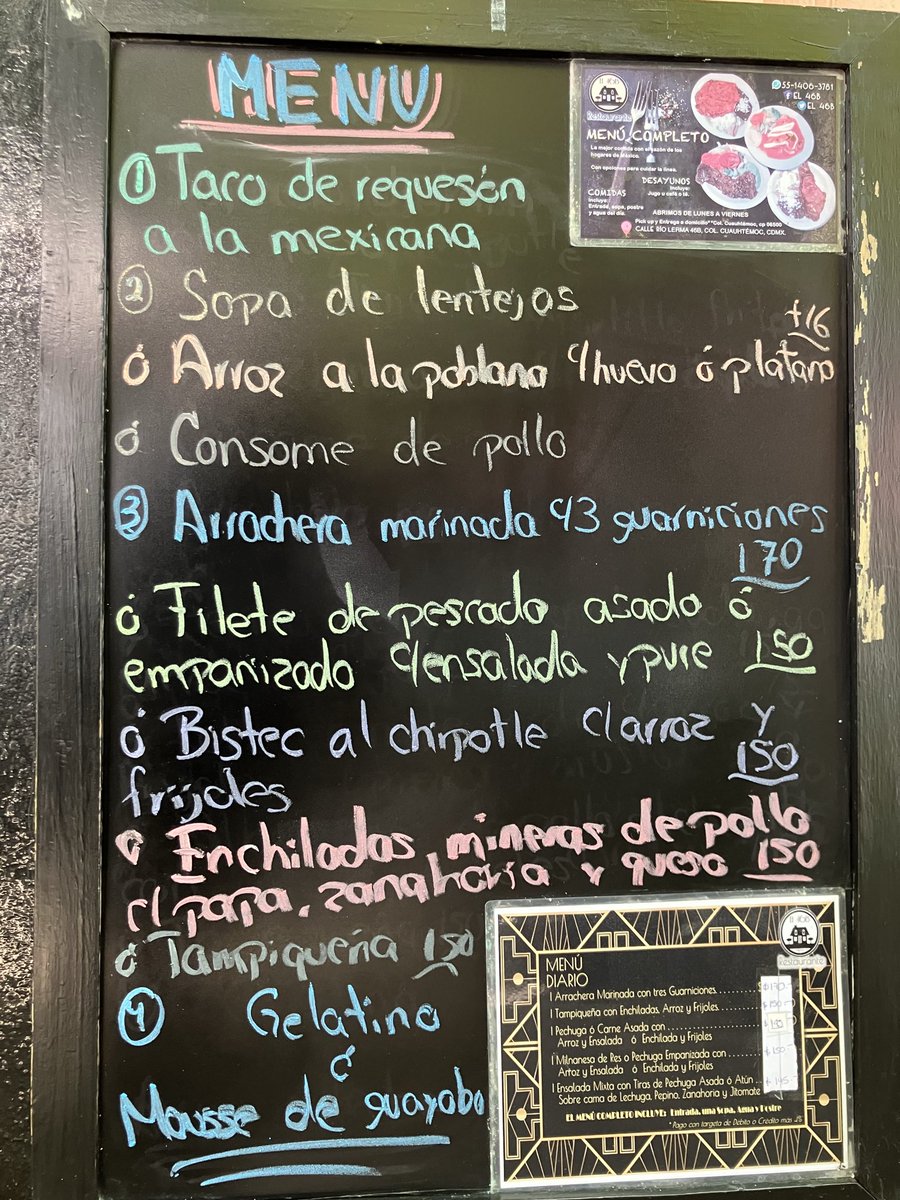 MENU
① Taco de requesón
a la mexicana
② Sopa de lentejas
+16
ó Arroz a la poblana c/huevo ó platano
ó Consome de pollo
③ Arrachera marinada c/3 guarniciones
170
ó Filete de pescado asado ó
empanizado c/ensalada y pure 150
ó Bistec al chipotle c/arroz y
frijoles 150
ó Enchiladas mineras de pollo
c/ papa, zanahoria y queso 150
ó Tampiqueña 150
④ Gelatina
ó
Mousse de guayaba
Restaurante
MENÚ COMPLETO
La mejor comida con el sazón de los
hogares de México.
Con opciones para cuidar la línea.
DESAYUNOS
Incluye:
Jugo y café o té.
COMIDAS
Incluye:
Entrada, sopa, postre
y agua del día.
55-1406-3781
EL 46B
EL 46B
ABRIMOS DE LUNES A VIERNES
Pick up y Entrega a domicilio* *Col. Cuauhtémoc, cp 06500
CALLE RÍO LERMA 46B, COL. CUAUHTÉMOC, CDMX.
Restaurante
MENÚ
DIARIO
1 Arrachera Marinada con tres Guarniciones
$170.-
1 Tampiqueña con Enchiladas, Arroz y Frijoles
$150.-
1 Pechuga ó Carne Asada con
Arroz y Ensalada ó Enchilada y Frijoles
1 Milnanesa de Res o Pechuga Empanizada con
$150.-
Arroz y Ensalada ó Enchilada y Frijoles
1 Ensalada Mixta con Tiras de Pechuga Asada ó Atún
Sobre cama de Lechuga, Pepino, Zanahoria y Jitomate
EL MENÚ COMPLETO INCLUYE: Entrada, una Sopa, Agua y Postre
*Pago con targeta de Debito o Credito más